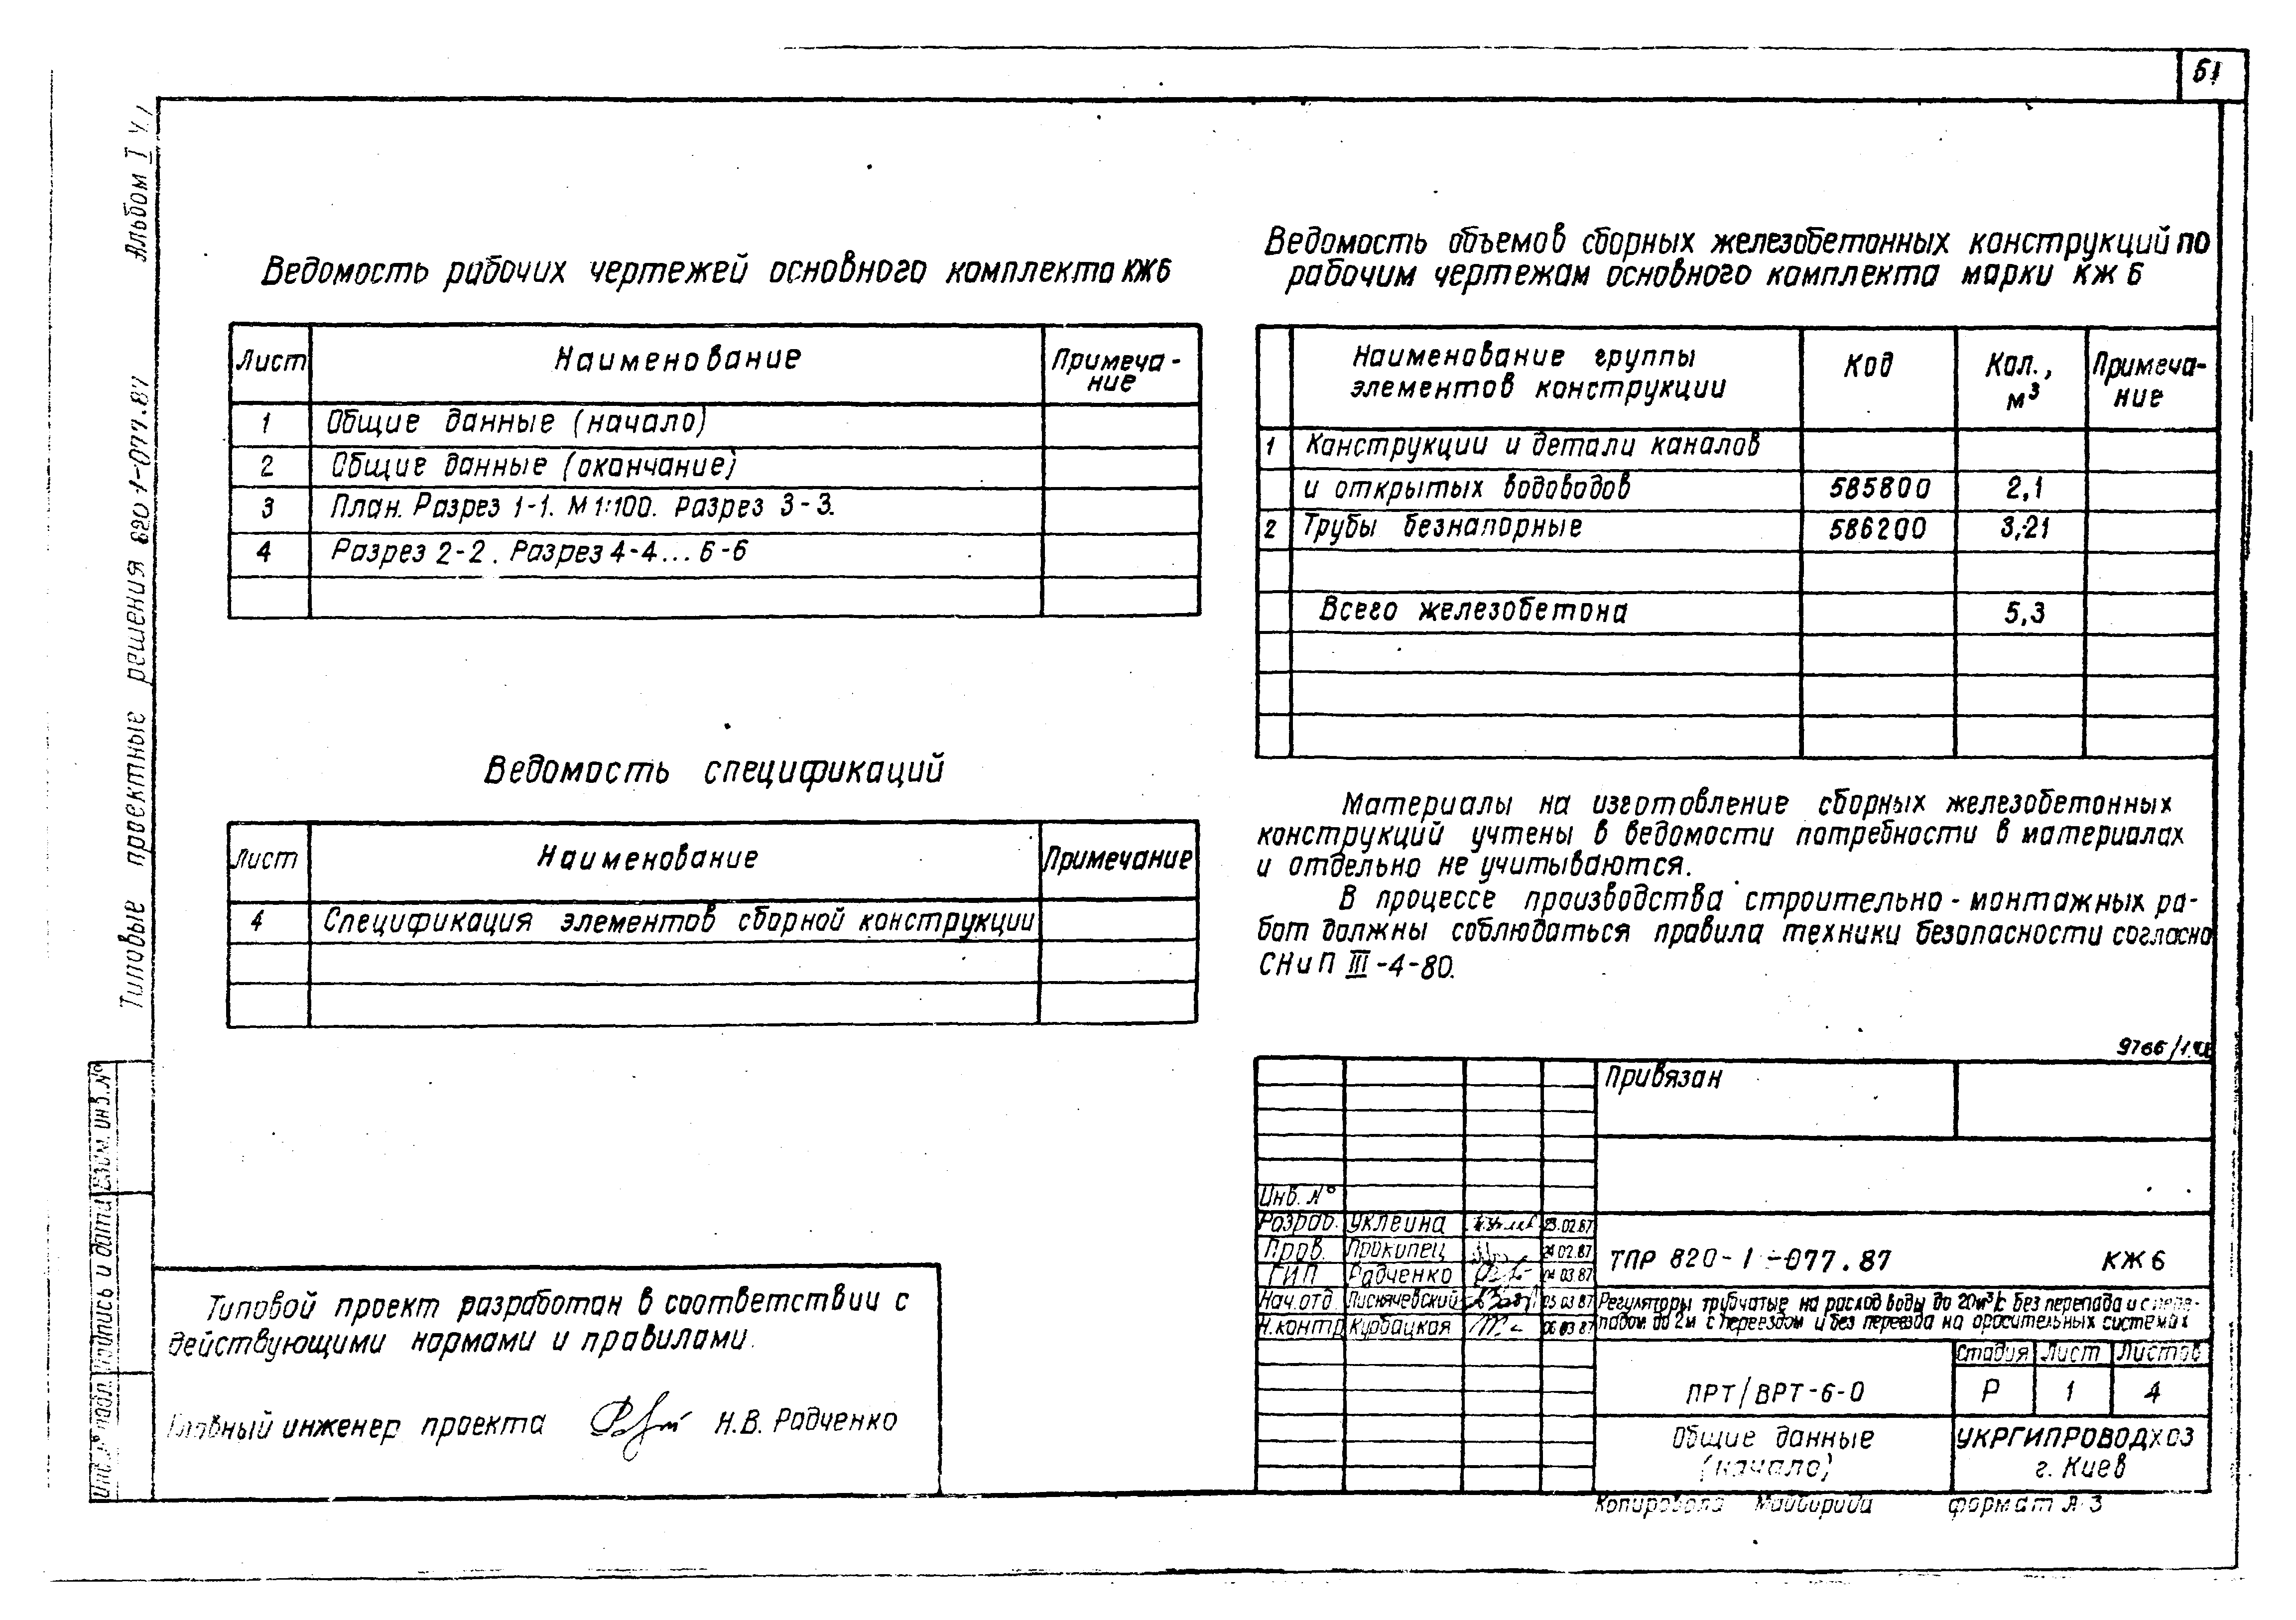 51
Альбом I ч.1
Типовые проектные решения 820-1-077.87
Ведомость рабочих чертежей основного комплекта КЖ6
Лист Наименование Примеча-
ние
1 Общие данные (начало)
2 Общие данные (окончание)
3 План. Разрез 1-1. М 1:100. Разрез 3-3.
4 Разрез 2-2. Разрез 4-4...6-6
Ведомость спецификаций
Лист Наименование Примечание
4 Спецификация элементов сборной конструкции
Ведомость объемов сборных железобетонных конструкций по
рабочим чертежам основного комплекта марки КЖ 6
Наименование группы
элементов конструкции
Код
Кол.,
м³
Примеча-
ние
1 Конструкции и детали каналов
и открытых водоводов 585800 2,1
2 Трубы безнапорные 586200 3,21
Всего железобетона 5,3
Материалы на изготовление сборных железобетонных
конструкций учтены в ведомости потребности в материалах
и отдельно не учитываются.
В процессе производства строительно-монтажных ра-
бот должны соблюдаться правила техники безопасности согласно
СНиП III-4-80.
Типовой проект разработан в соответствии с
действующими нормами и правилами.
Главный инженер проекта Н.В. Радченко
Инв.№ подл. Подпись и дата Взам. инв. №
9766/1.
Привязан
Инв. №
Разраб. Уклеина 23.02.87
Пров. Прокипец 24.02.87
ГИП Радченко 04.03.87
Нач.отд Лиснячевский 05.03.87
Н.контр Курбацкая 06.03.87
ТПР 820-1-077.87 КЖ 6
Регуляторы трубчатые на расход воды до 20м³/с без перепада и с пере-
падом до 2м с переездом и без переезда на оросительных системах
ПРТ/ВРТ-6-0
Стадия Лист Листов
Р 1 4
Общие данные
(начало)
УКРГИПРОВОДХОЗ
г. Киев
Копировала формат А3